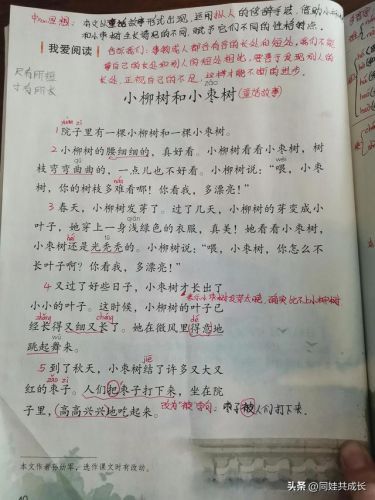 中心思想：本文以童话故事形式出现，运用拟人的修辞手法，借助小柳树
和小枣树生长特点的不同，赋予它们不同的性格特点。
我爱阅读
告诉我们：事物或人都会有各自的长处和短处，我们不能
拿自己的长处和别人的短处相比，要善于发现别人的
长处，正视自己的不足，这样才能不断的进步。
尺有所短
寸有所长
zǎo
小柳树和小枣树（童话故事）
yuàn zi
1 院子里有一棵小柳树和一棵小枣树。
2 小柳树的腰细细的，真好看。小柳树看看小枣树，树
wèi
枝弯弯曲曲的，一点儿也不好看。小柳树说：“喂，小枣
nán
树，你的树枝多难看哪！你看我，多漂亮！”
3 春天，小柳树发芽了。过了几天，小柳树的芽变成小
qiǎn
叶子，她穿上一身浅绿色的衣服，真美！她看看小枣树，
hái tū
小枣树还是光秃秃的。小柳树说：“喂，小枣树，你怎么不
长叶子啊？你看我，多漂亮！”
4 又过了好些日子，小枣树才长出了
小小的叶子。这时候，小柳树的叶子已
经长得又细又长了。她在微风里得意地
wǔ
跳起舞来。
jiē
5 到了秋天，小枣树结了许多又大又
zǎo zi
红的枣子。人们把枣子打下来，坐在院
子里，高高兴兴地吃起来。
改为“被”字句：枣子被人们打下来。
本文作者孙幼军，选作课文时有改动。
头条 @同娃共成长